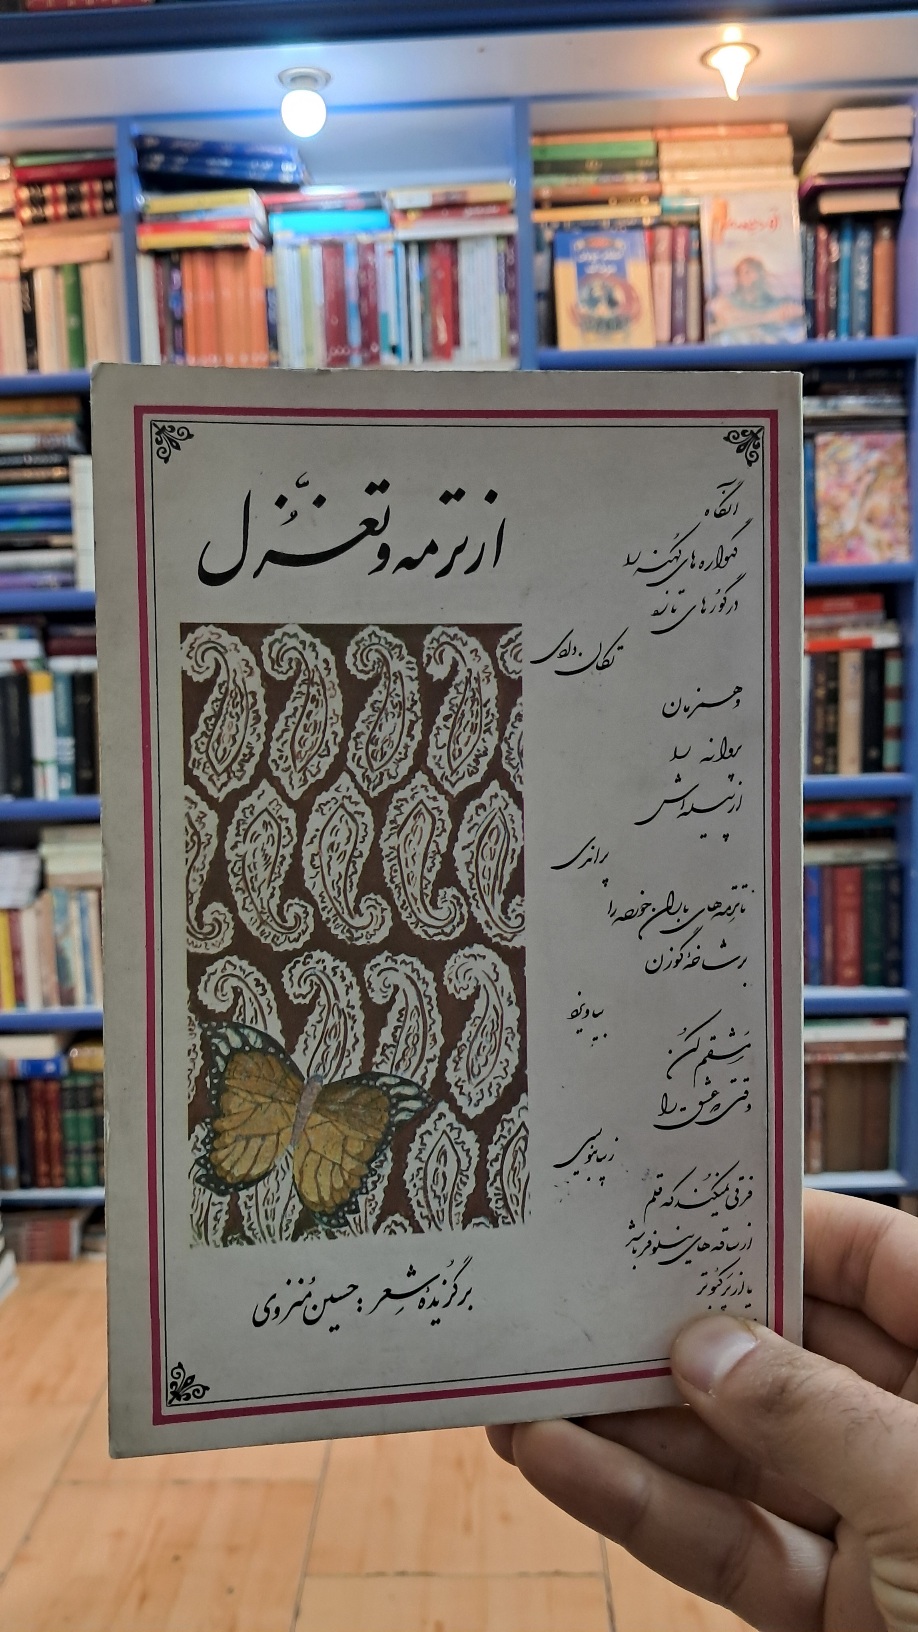 از ترمه و تغزّل
آنگاه
گهواره های کهنه را
در گورهای تازه
تکان دادی
و همزمان
پروانه را
از پیله اش
پراندی
تا ترمه های باران خورده را
بر شاخهٔ گوزن
بیاویزد
سرمشقم کن
وقتی عشق را
زیبا بنویسی
فرقی نمیکند که قلم
از ساقه های نیلوفر باشد
یا از پر کبوتر
برگزیدهٔ شعر : حسین مُنزوی